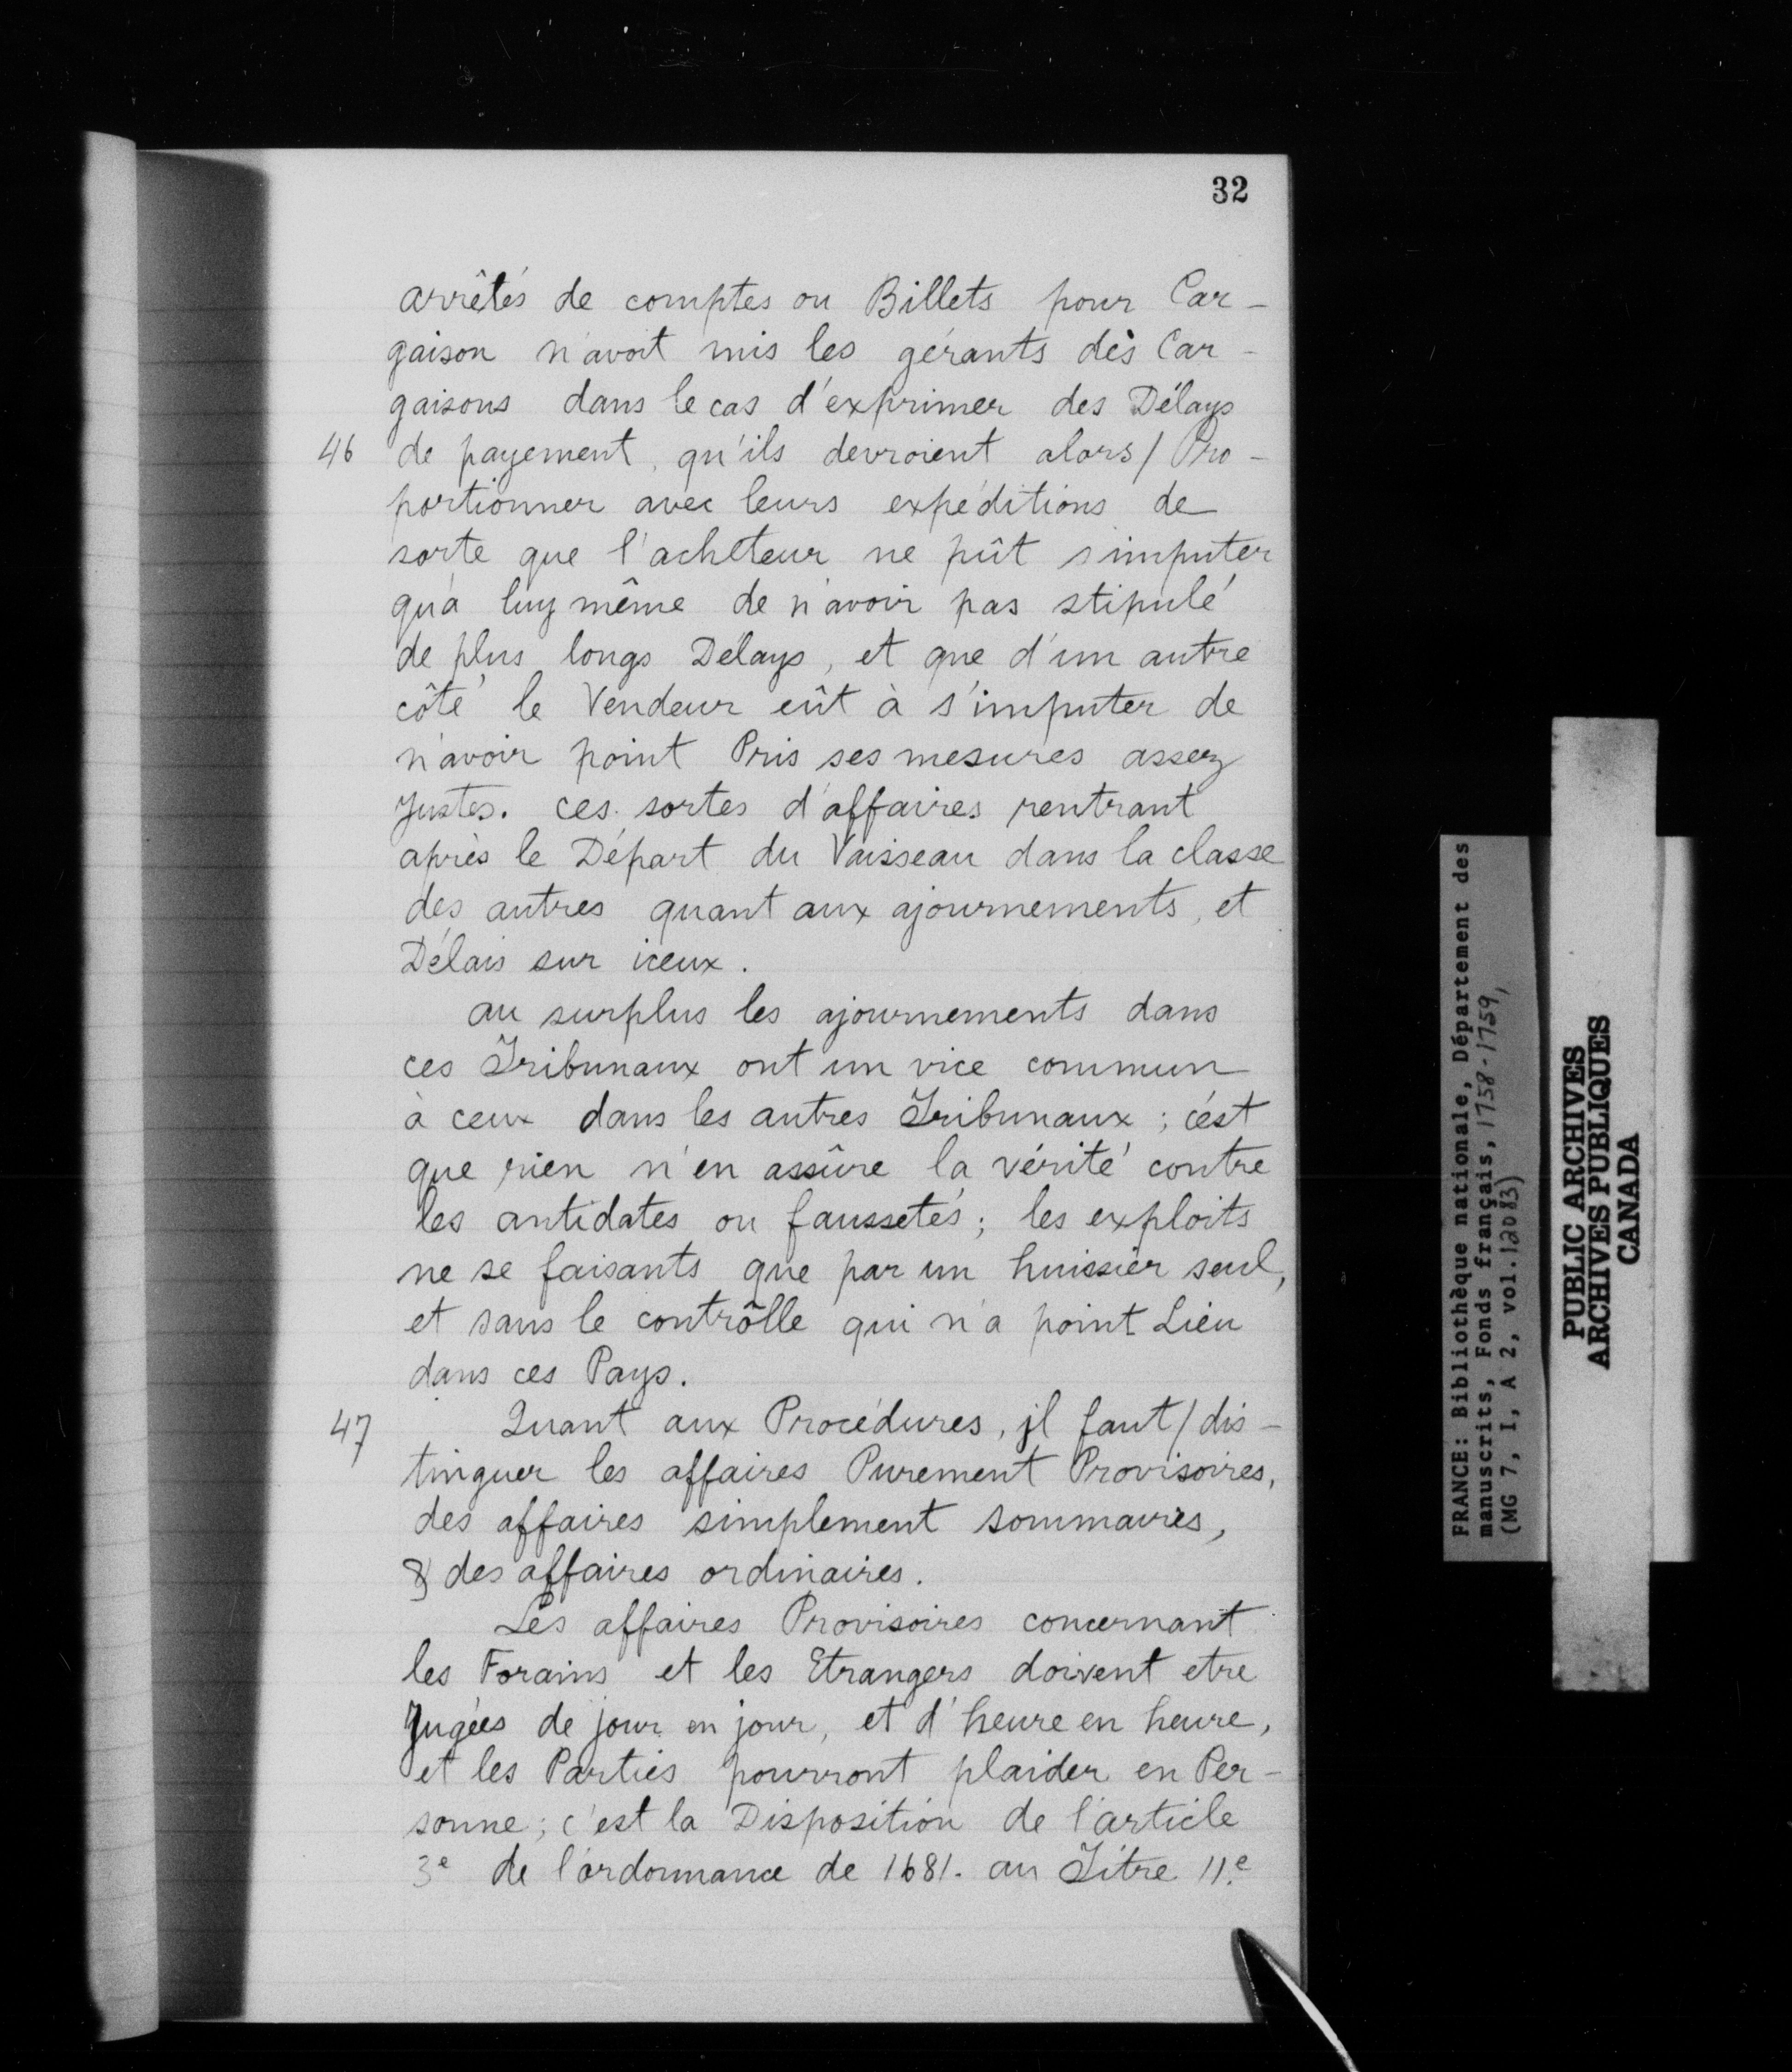 32
arrêtés de comptes ou Billets pour Car-
gaison n'avoit mis les gérants dès Car-
gaisons dans le cas d'exprimer des Délays
46 de payement, qu'ils devroient alors/ Pro-
portionner avec leurs expéditions de
sorte que l'acheteur ne pût s'imputer
qu'à luy même de n'avoir pas stipulé
de plus longs Délays, et que d'un autre
côté le Vendeur eût à s'imputer de
n'avoir point Pris ses mesures assez
Justes. ces sortes d'affaires rentrant
après le Départ du Vaisseau dans la classe
des autres quant aux ajournements, et
Délais sur iceux.
au surplus les ajournements dans
ces Tribunaux ont un vice commun
à ceux dans les autres Tribunaux; c'est
que rien n'en assûre la vérité contre
les antidates ou faussetés; les exploits
ne se faisants que par un huissier seul,
et sans le contrôlle qui n'a point Lieu
dans ces Pays.
47 Quant aux Procédures, jl faut/ dis-
tinguer les affaires Purement Provisoires,
des affaires simplement sommaires,
& des affaires ordinaires.
Les affaires Provisoires concernant
les Forains et les Etrangers doivent etre
Jugées de jour en jour, et d'heure en heure,
et les Parties pourront plaider en Per-
sonne; c'est la Disposition de l'article
3e de l'ordonnance de 1681. au Titre 11.e
FRANCE: Bibliothèque nationale, Département des
manuscrits, Fonds français, 1758-1759,
(MG 7, I, A 2, vol. 12083)
PUBLIC ARCHIVES
ARCHIVES PUBLIQUES
CANADA